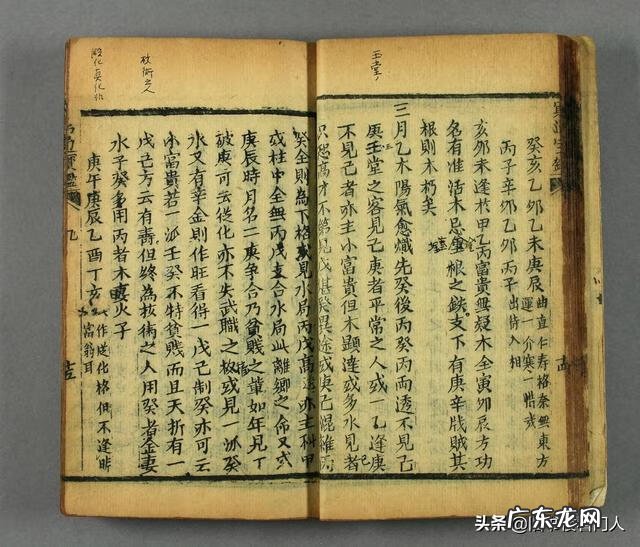 玉堂
癸亥乙夘乙未庚辰
曲直仁寿格柰無東方
運一介寒一惜哉
丙子辛夘乙夘丙子
出侍入相
亥夘未逢於甲乙丙富貴無疑木全寅夘辰方功
名有准活木忌埋根之鉄支下有庚辛戕賊其
根則木朽矣
三月乙木陽氣愈熾先癸後丙癸丙兩透不見己
庚玉堂之客見己庚者平常之人或一乙逢庚
不見己者亦主小富貴但木顯達或多水見者
只恐高才不第見戊癸異途或庚己混雜丙
技術之人
癸全則為下格或見水局丙戊高透亦主科甲
或柱中全無丙戊支合水局此離鄉之命又或
庚辰時月名二庚爭合乃貧賤之輩如年見丁
破庚可云從化亦不失武職之权或見一派癸
水又有辛金則作旺看得一戊己制癸亦可云
小富貴若一派壬癸不特貧賤而且夭折有一
戊己方云有壽但終為技術之人用癸者金妻
水子癸多用丙者木妻火子
庚年庚辰乙酉丁亥
作從化格但不逢時
富翁耳
寶鑑
九
十五
头条
广东龙网